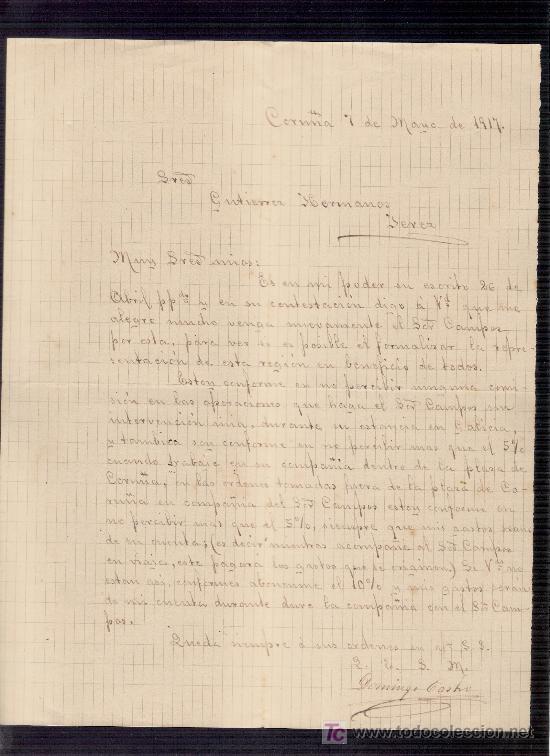 Coruña 7 de Mayo de 1917.
Sres
Gutierrez Hermanos
Jerez
Muy Sres mios:
Es en mi poder su escrito 26 de
Abril ppdo y en su contestación digo á Vs que me
alegre mucho venga nuevamente el Sor Campos
por esta, para ver si es posible el formalizar la repre-
sentación de esta región en beneficio de todos.
Estoy conforme en no percibir ninguna comi-
sión en las operaciones que haga el Sor Campos sin
intervención mia, durante su estancia en Galicia,
y tambien soy conforme en no percibir mas que el 5%
cuando trabaje en su compañia dentro de la plaza de
Coruña, en las ordenes tomadas fuera de la plaza de Co-
ruña en compañia del Sor Campos estoy conforme en
no percibir más que el 5%, siempre que mis gastos sean
de su cuenta; (es decir mientras acompañe al Sor Campos
en viaje, este pagará los gastos que se originen) Si Vds no
estan asi, conformes abonenme el 10% y mis gastos serán
de mi cuenta durante dure la compañia con el Sor Cam-
pos.
Queda siempre á sus ordenes su S. S.
Q. E. S. M.
Domingo Castro
TC todocoleccion.net